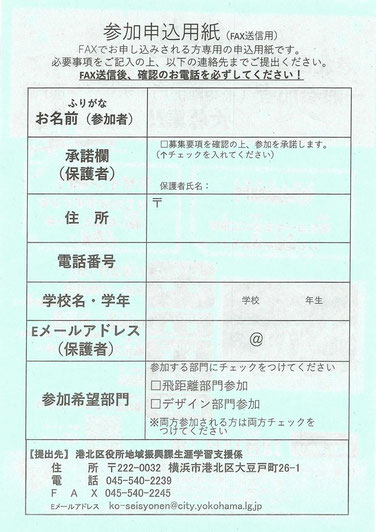 参加申込用紙(FAX送信用)
FAXでお申し込みされる方専用の申込用紙です。
必要事項をご記入の上、以下の連絡先までご提出ください。
FAX送信後、確認のお電話を必ずしてください！
ふりがな
お名前(参加者)
承諾欄
(保護者)
□募集要項を確認の上、参加を承諾します。
(↑チェックを入れてください)
保護者氏名：
住　所
〒
電話番号
学校名・学年
学校　　　年生
Eメールアドレス
(保護者)
@
参加希望部門
参加する部門にチェックをつけてください
□飛距離部門参加
□デザイン部門参加
※両方参加される方は両方チェックを
つけてください
【提出先】港北区役所地域振興課生涯学習支援係
住　　所　〒222-0032　横浜市港北区大豆戸町26-1
電　　話　045-540-2239
F　A　X　045-540-2245
Eメールアドレス　ko-seisyonen@city.yokohama.lg.jp